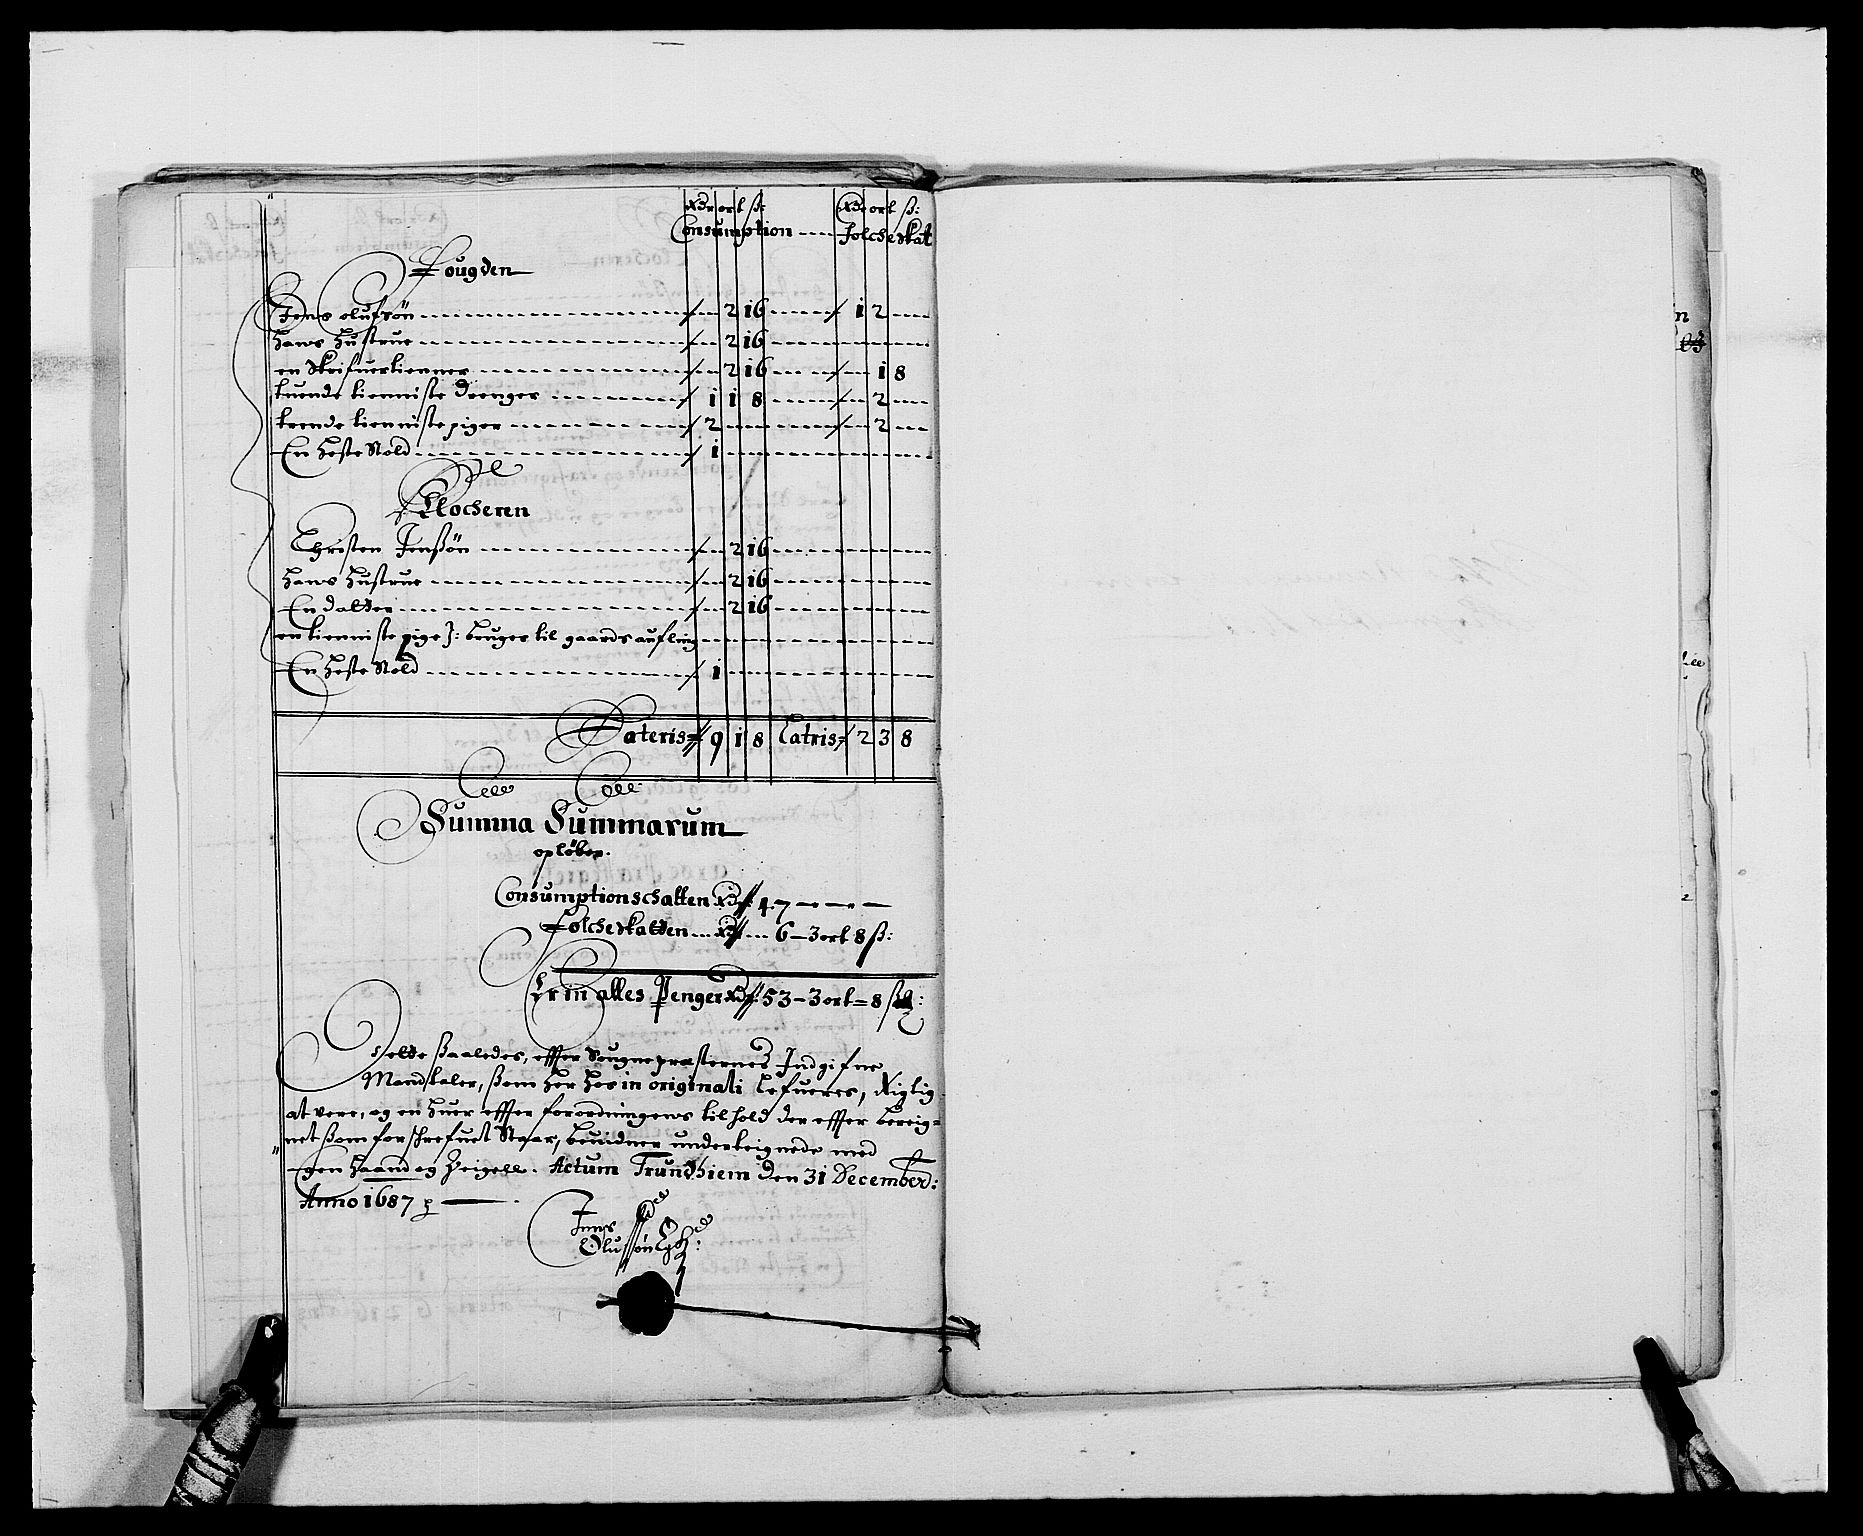 Rdr ort ß: Rdr ort ß:
Consumption Folcheskat
Fougden
Jens olufsön 2 16 1 2
hans hustrue 2 16
en Skrifuertienner 2 16 1 8
tuende tienniste drenger 1 1 8 2
trende tienniste piger 2 2
En heste Nold 1
Klocheren
Christen Jenßön 2 16
hans hustrue 2 16
En datter 2 16
en tienniste pige J: bruger til gaards aufling
En heste Nold 1
Lateris 9 1 8 Latris 2 3 8
Summa Summarum
opløber.
Consumptionschatten Rdr 47
Folcheskatten Rdr 6 – 3 ort 8 ß:
Er in alles Penger Rdr 53 – 3 ort = 8 ß
dette ßaaledes, effter Sougnepræsternes Indgifne
Mandtaler, ßom her hos in originali Lefueres, Rigtig
at vere, og en huer effter forordningens tilhold der effter bereig=
net ßom forschrefuet Staar, beuidner underteignede med
Egen haand og Zeigell. Actum Trundhiem den 31 December:
Anno 1687
Jens
Olufsön